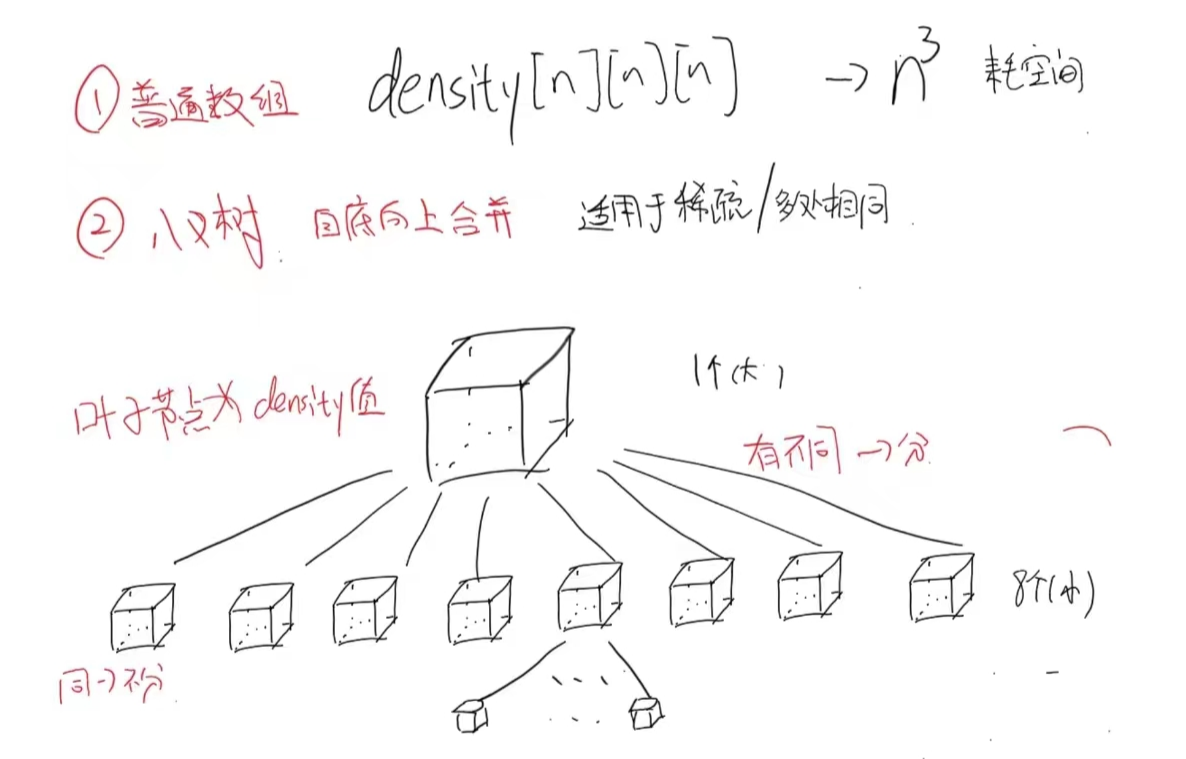 ① 普通数组 density[n][n][n] → n³ 耗空间
② 八叉树 自底向上合并 适用于稀疏/多处相同
1个(大)
叶子节点为density值
有不同→分
8个(小)
同→不分